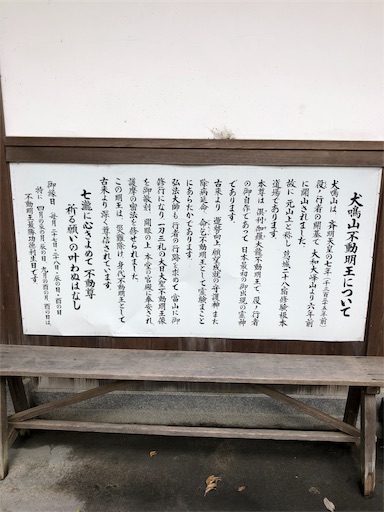 犬鳴山不動明王について
犬鳴山は、斉明天皇の七年(一千三百二十五年前)
役ノ行者の開基で、大和大峰山より六年前
に開山されました。
故に、元山上と称し、葛城二十八宿修験根本
道場であります。
本尊は、倶利伽羅大龍不動明王で、役ノ行者
の御自作であって、日本最初の御出現の霊神
であります。
古来より、運勢向上、願望成就の守護神、また
除病延命、命乞不動明王として霊験まこと
にあらたかであります。
弘法大師も、行者の行跡を求めて、当山に御
修行になり、一刀三礼の大日大聖不動明王像
を御敬刻、開眼の上、本堂の宮殿に奉安され
護摩の密法を修せられました。
この明王は、厄除難除け、身代不動明王として
古来より深く尊信されています。
七瀧に心きよめて 不動尊
祈る願いの叶わぬはなし
御縁日 毎月、二十七、二十八、辰の日、酉の日
特に、四月の辰の月、辰の日、九月の酉の月、酉の日は、
不動明王最勝功徳利生日です。